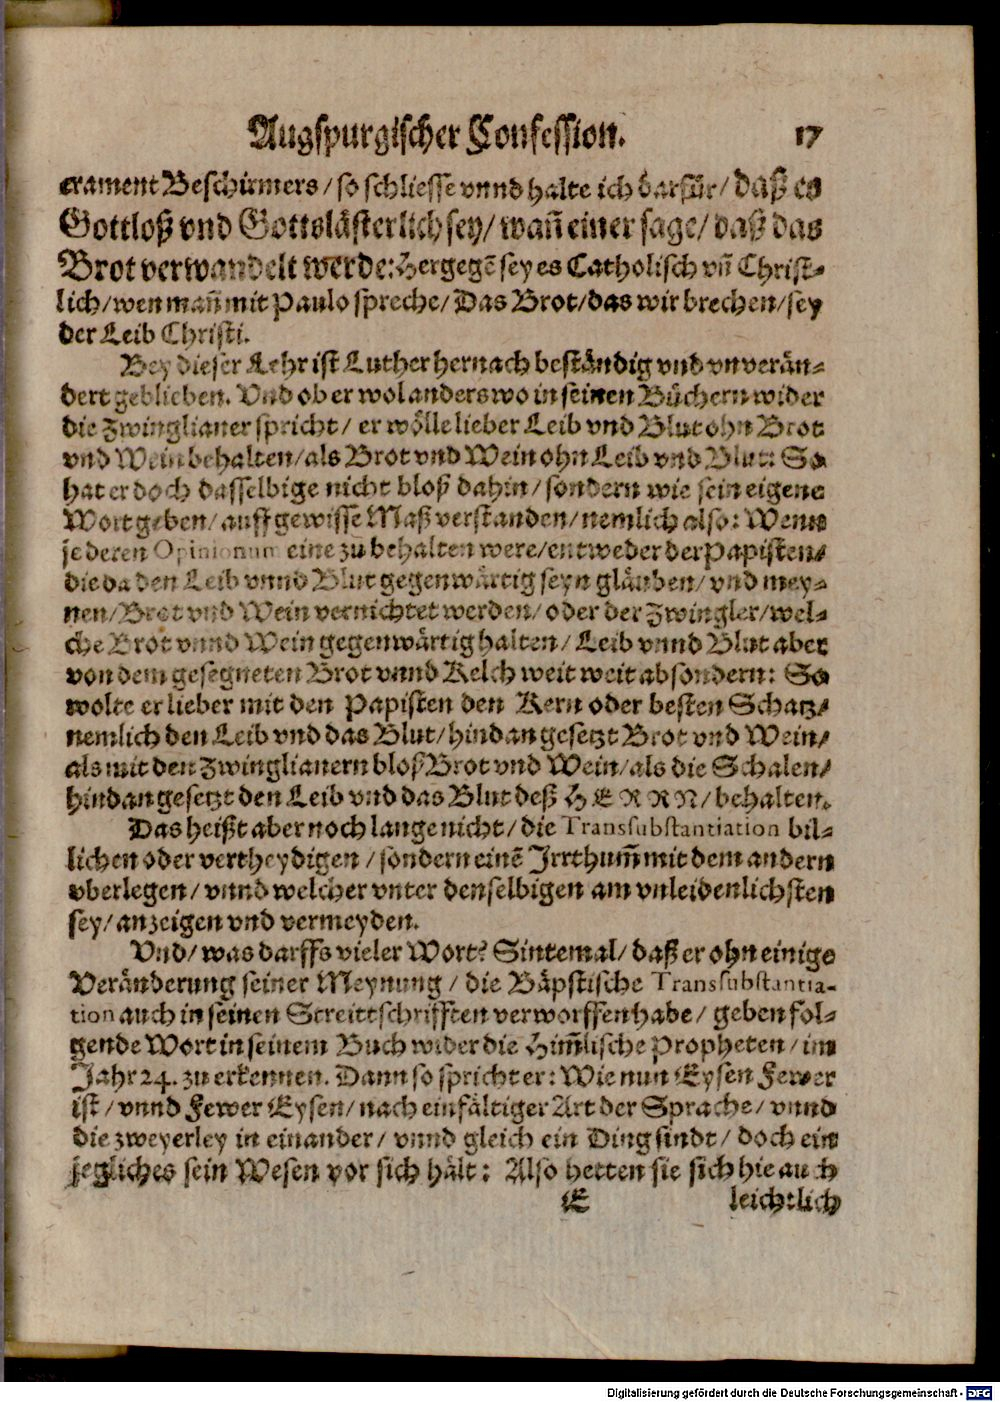 Augspurgischer Confession. 17
crament Beschirmers / so schliesse vnnd halte ich darfür / daß es
Gottloß vnd Gottslästerlich sey / wañ einer sage / daß das
Brot verwandelt werde: Hergegē sey es Catholisch vñ Christ-
lich / wen mañ mit Paulo spreche / Das Brot / das wir brechen / sey
der Leib Christi.
Bey dieser Lehr ist Luther hernach beständig vnd vnverän-
dert geblieben. Vnd ob er wol anderswo in seinen Büchern wider
die Zwinglianer spricht / er wölle lieber Leib vnd Blut ohn Brot
vnd Wein behalten / als Brot vnd Wein ohn Leib vnd Blut: So
hat er doch dasselbige nicht bloß dahin / sondern wie sein eigene
Wort geben / auff gewisse Maß verstanden / nemlich also: Wenn
je deren Opinionum eine zu behalten were / entweder der Papisten /
die da den Leib vnnd Blut gegenwärtig seyn gläuben / vnd mey-
nen / Brot vnd Wein vernichtet werden / oder der Zwingler / wel-
che Brot vnnd Wein gegenwärtig halten / Leib vnnd Blut aber
von dem gesegneten Brot vnnd Kelch weit weit absondern: So
wolte er lieber mit den Papisten den Kern oder besten Schatz /
nemlich den Leib vnd das Blut / hindangesetzt Brot vnd Wein /
als mit den Zwinglianern bloß Brot vnd Wein / als die Schalen /
hindangesetzt den Leib vnd das Blut deß HERRN / behalten.
Das heißt aber noch lange nicht / die Transsubstantiation bil-
lichen oder vertheydigen / sondern einē Irrthum̃ mit dem andern
vberlegen / vnnd welcher vnter denselbigen am vnleidenlichsten
sey / anzeigen vnd vermeyden.
Vnd / was darffs vieler Wort? Sintemal / daß er ohn einige
Veränderung seiner Meynung / die Bäpstische Transsubstantia-
tion auch in seinen Streittschrifften verworffen habe / geben fol-
gende Wort in seinem Buch wider die Him̃lische Propheten / im
Jahr 24. zu erkennen. Dann so spricht er: Wie nun Eysen Fewer
ist / vnnd Fewer Eysen / nach einfältiger Art der Sprache / vnnd
die zweyerley in einander / vnnd gleich ein Ding sindt / doch ein
jegliches sein Wesen vor sich hält: Also hetten sie sich hie auch
E leichtlich
Digitalisierung gefördert durch die Deutsche Forschungsgemeinschaft - DFG